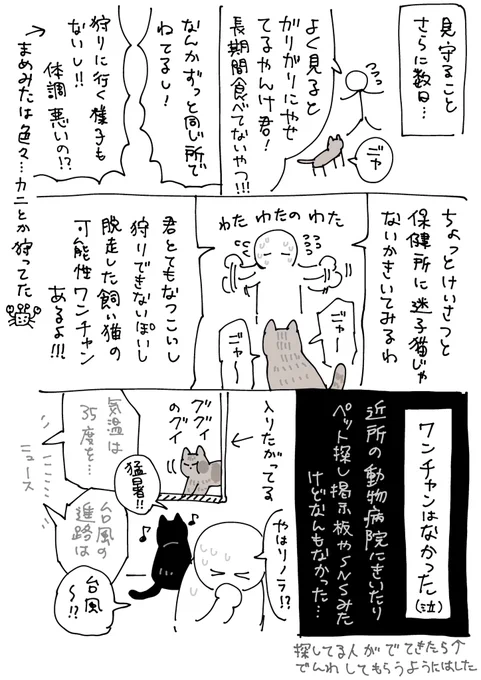 見守ること
さらに数日…
ニャ
よく見ると
がりがりにやせ
てるやんけ君!
長期間食べてないやつ!!!
なんかずっと同じ所で
ねてるし!
狩りに行く様子も
ないし!!
体調悪いの!?
まめみたは色々…カニとか狩ってた
ちょっとけいさつと
保健所に迷子猫じゃ
ないかきいてみるわ
わたわたのわた
ニャー
ニャ〜
君とてもなつこいし
狩りできないぽいし
脱走した飼い猫の
可能性ワンチャン
あるよ!!!
ワンチャンはなかった(泣)
近所の動物病院にきいたり
ペット探し掲示板やSNSみた
けどなんもなかった…
探してる人がでてきたら
でんわしてもらうようにはした
入りたがってる
やはりノラ!?
ググイ
のグイ
猛暑!!
台風
〜!?
気温は
35度を…
台風の
進路は
ニュース